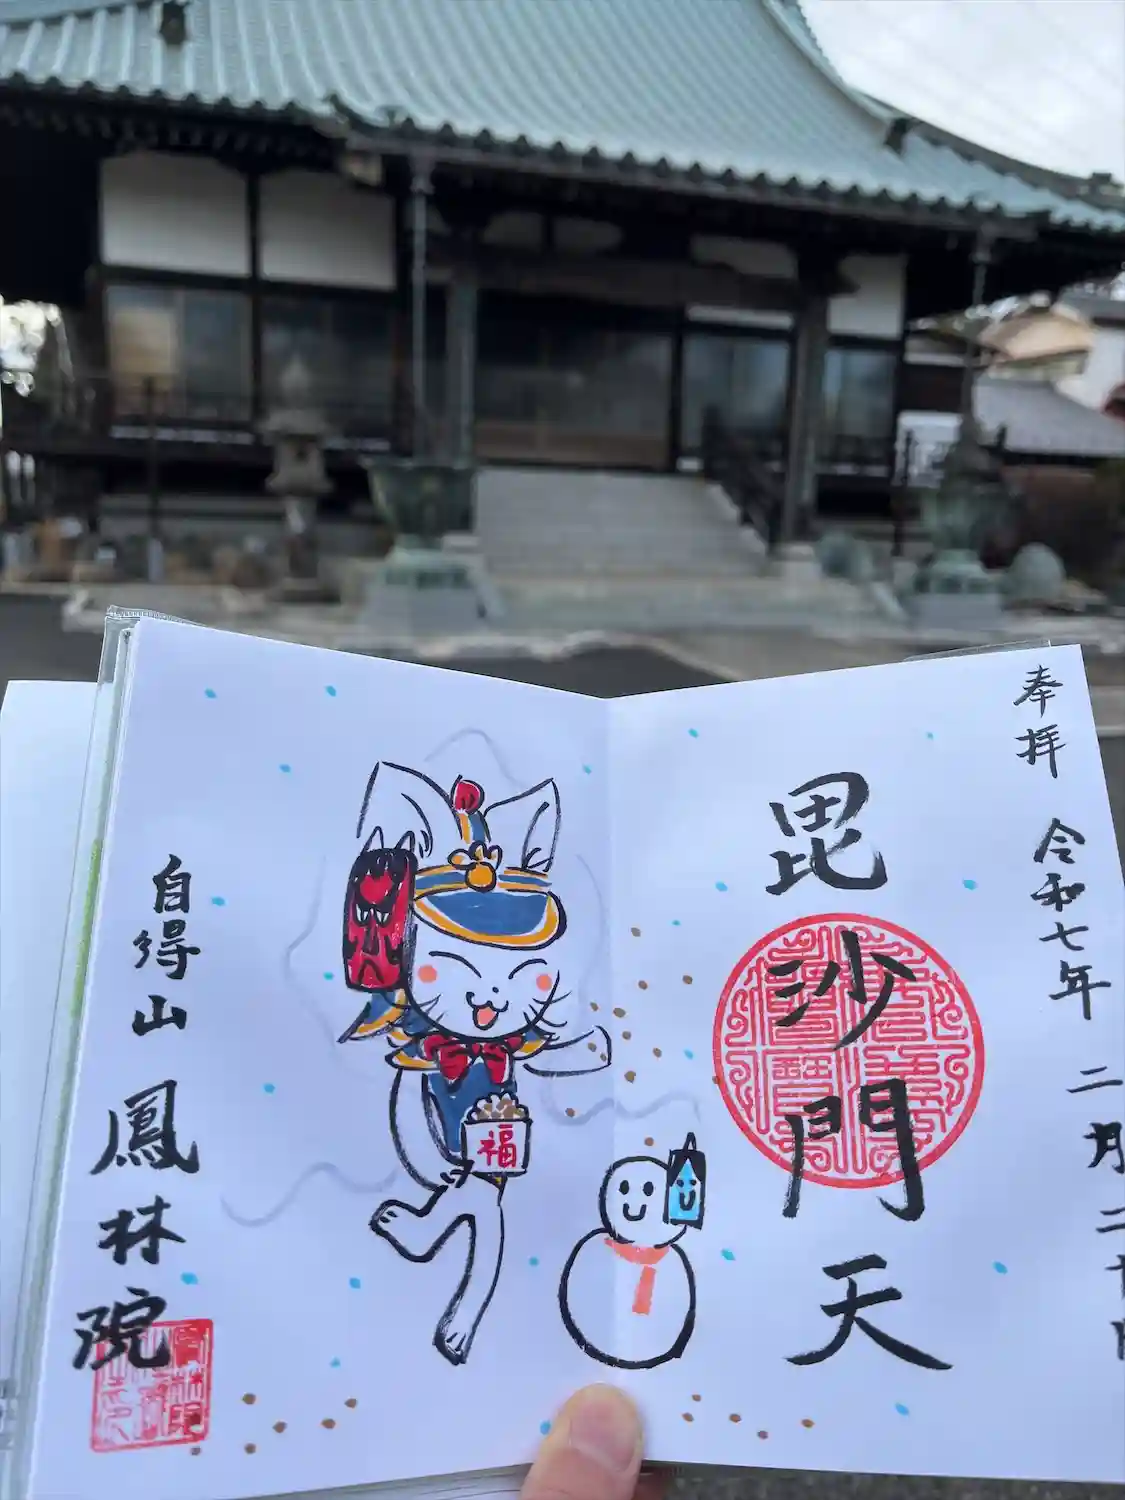 奉拝 令和七年 二月二十日
毘沙門天
福
自得山 鳳林院